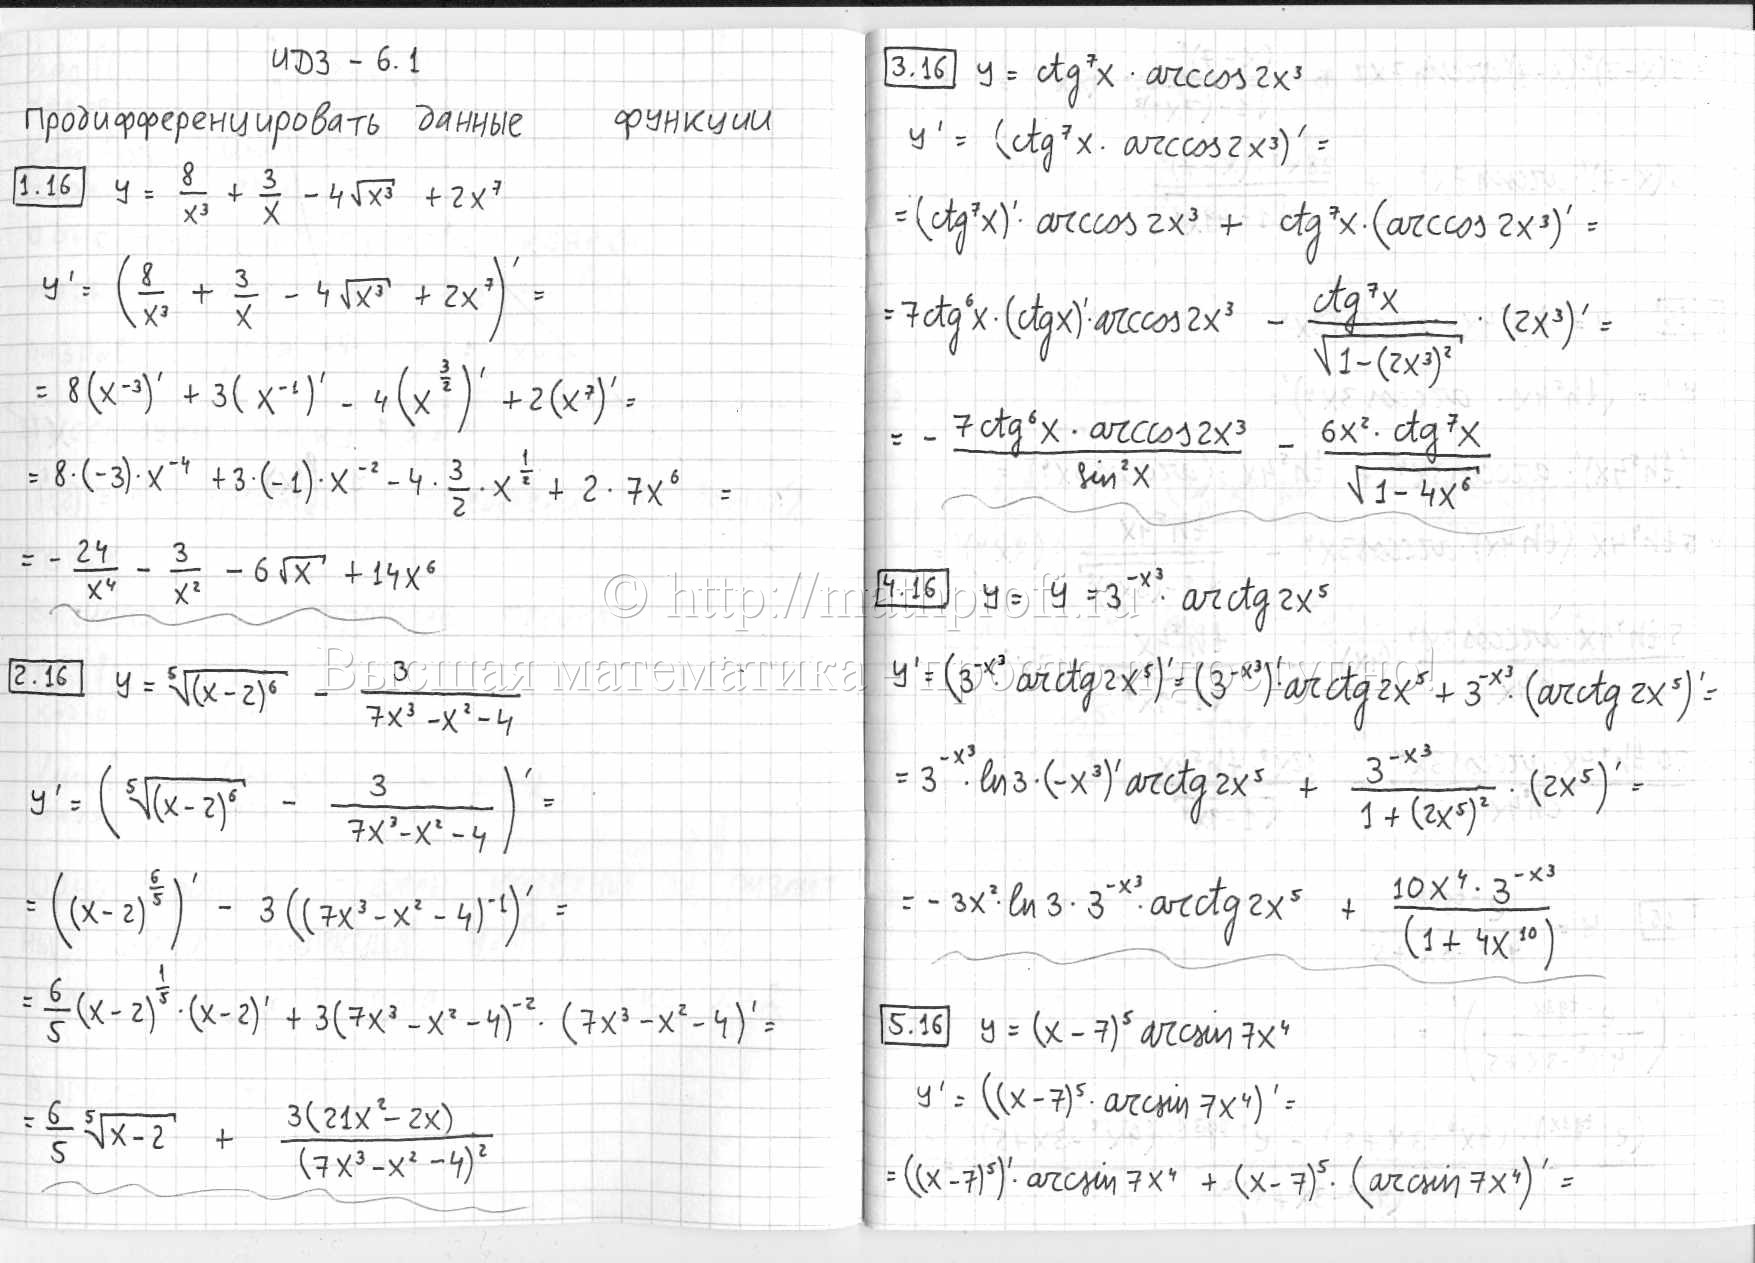 ИДЗ – 6.1
Продифференцировать данные функции
1.16 y = 8/x³ + 3/x – 4√x³ + 2x⁷
y' = (8/x³ + 3/x – 4√x³ + 2x⁷)' =
= 8(x⁻³)' + 3(x⁻¹)' – 4(x^(3/2))' + 2(x⁷)' =
= 8·(–3)·x⁻⁴ + 3·(–1)·x⁻² – 4·3/2·x^(1/2) + 2·7x⁶ =
= –24/x⁴ – 3/x² – 6√x + 14x⁶
2.16 y = ⁵√(x–2)⁶ – 3/(7x³–x²–4)
y' = (⁵√(x–2)⁶ – 3/(7x³–x²–4))' =
= ((x–2)^(6/5))' – 3((7x³–x²–4)⁻¹)' =
= 6/5(x–2)^(1/5)·(x–2)' + 3(7x³–x²–4)⁻²·(7x³–x²–4)' =
= 6/5 ⁵√(x–2) + 3(21x²–2x)/(7x³–x²–4)²
3.16 y = ctg⁷x · arccos2x³
y' = (ctg⁷x · arccos2x³)' =
= (ctg⁷x)'·arccos2x³ + ctg⁷x·(arccos2x³)' =
= 7ctg⁶x·(ctgx)'·arccos2x³ – ctg⁷x/√(1–(2x³)²) · (2x³)' =
= – 7ctg⁶x·arccos2x³/sin²x – 6x²·ctg⁷x/√(1–4x⁶)
4.16 y = y = 3^(–x³)·arctg2x⁵
y' = (3^(–x³)·arctg2x⁵)' = (3^(–x³))'·arctg2x⁵ + 3^(–x³)·(arctg2x⁵)' =
= 3^(–x³)·ln3·(–x³)'arctg2x⁵ + 3^(–x³)/(1+(2x⁵)²) · (2x⁵)' =
= –3x²·ln3·3^(–x³)·arctg2x⁵ + 10x⁴·3^(–x³)/(1+4x¹⁰)
5.16 y = (x–7)⁵ arcsin7x⁴
y' = ((x–7)⁵·arcsin7x⁴)' =
= ((x–7)⁵)'·arcsin7x⁴ + (x–7)⁵·(arcsin7x⁴)' =
© http://mathprofi.ru
Высшая математика – просто и доступно!